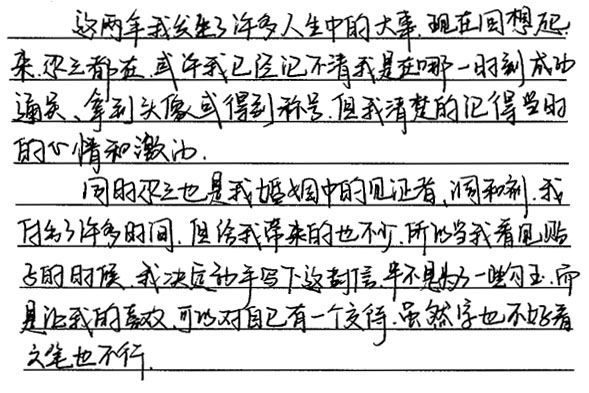 这两年我发生了许多人生中的大事.现在回想起
来.求之都在.或许我已经记不清我是在哪一时刻成功
通关、拿到头像或得到称号.但我清楚的记得当时
的心情和激动.
同时求之也是我婚姻中的见证者、润和剂.我
付出了许多时间.但给我带来的也不少.所以当我看见贴
子的时候.我决定动手写下这封信.并不是为了一些勾玉.而
是让我的喜欢.可以对自己有一个交待.虽然字也不好看
文笔也不行.